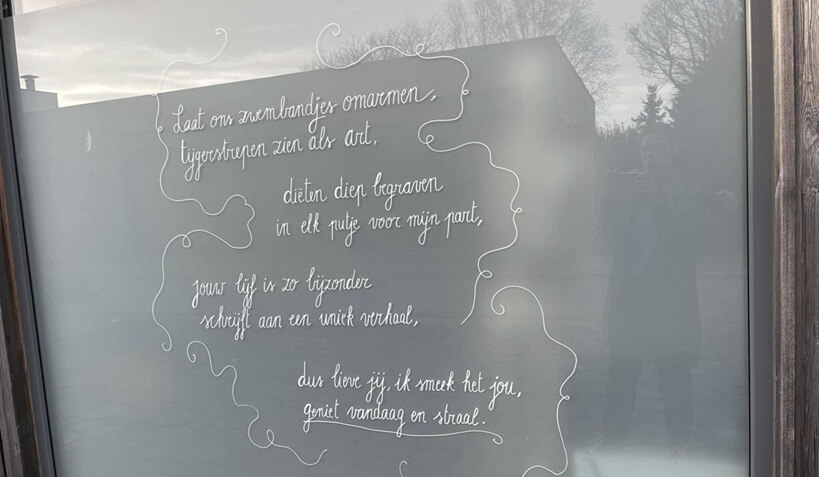 Laat ons zwembandjes omarmen,
tijgerstrepen zien als art,
diëten diep begraven
in elk putje voor mijn part,
jouw lijf is zo bijzonder
schrijft aan een uniek verhaal,
dus lieve jij, ik smeek het jou,
geniet vandaag en straal.